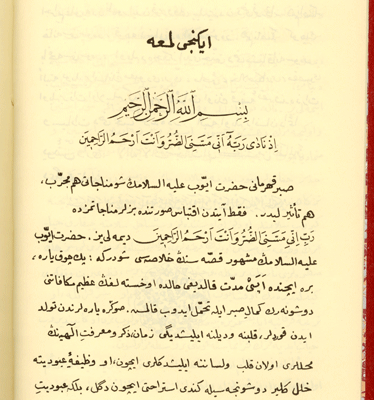 ایکنجی لمعه
بِسْمِ اللّٰهِ الرَّحْمٰنِ الرَّحِيمِ
اِذْ نَادٰى رَبَّهُٓ اَنِّى مَسَّنِىَ الضُّرُّ وَاَنْتَ اَرْحَمُ الرَّاحِمِينَ
صبر قهرمانى حضرت ايّوب عليه السلامك شو مناجاتى هم مجرّب،
هم تأثيرليدر. فقط آيتدن اقتباس صورتنده بزلر مناجاتمزده
رَبِّ اِنِّى مَسَّنِىَ الضُّرُّ وَاَنْتَ اَرْحَمُ الرَّاحِمِينَ ديمه لى يز. حضرت ايّوب
عليه السلامك مشهور قصه سنك خلاصه سى شودركه: پك چوق ياره،
بره ايچنده اپَى مدّت قالديغى حالده او خسته لغك عظيم مكافاتنى
دوشونه رك كمال صبر ايله تحمّل ايدوب قالمش. صوكره ياره لرندن تولد
ايدن قوردلر، قلبنه و ديلنه ايليشديگى زمان، ذكر و معرفت الٰهيه نك
محللرى اولان قلب و لساننه ايليشدكلرى ايچون، او وظيفهٔ عبوديته
خلل كلير دوشونجه سيله كندى استراحتى ايچون دگل، بلكه عبوديتِ